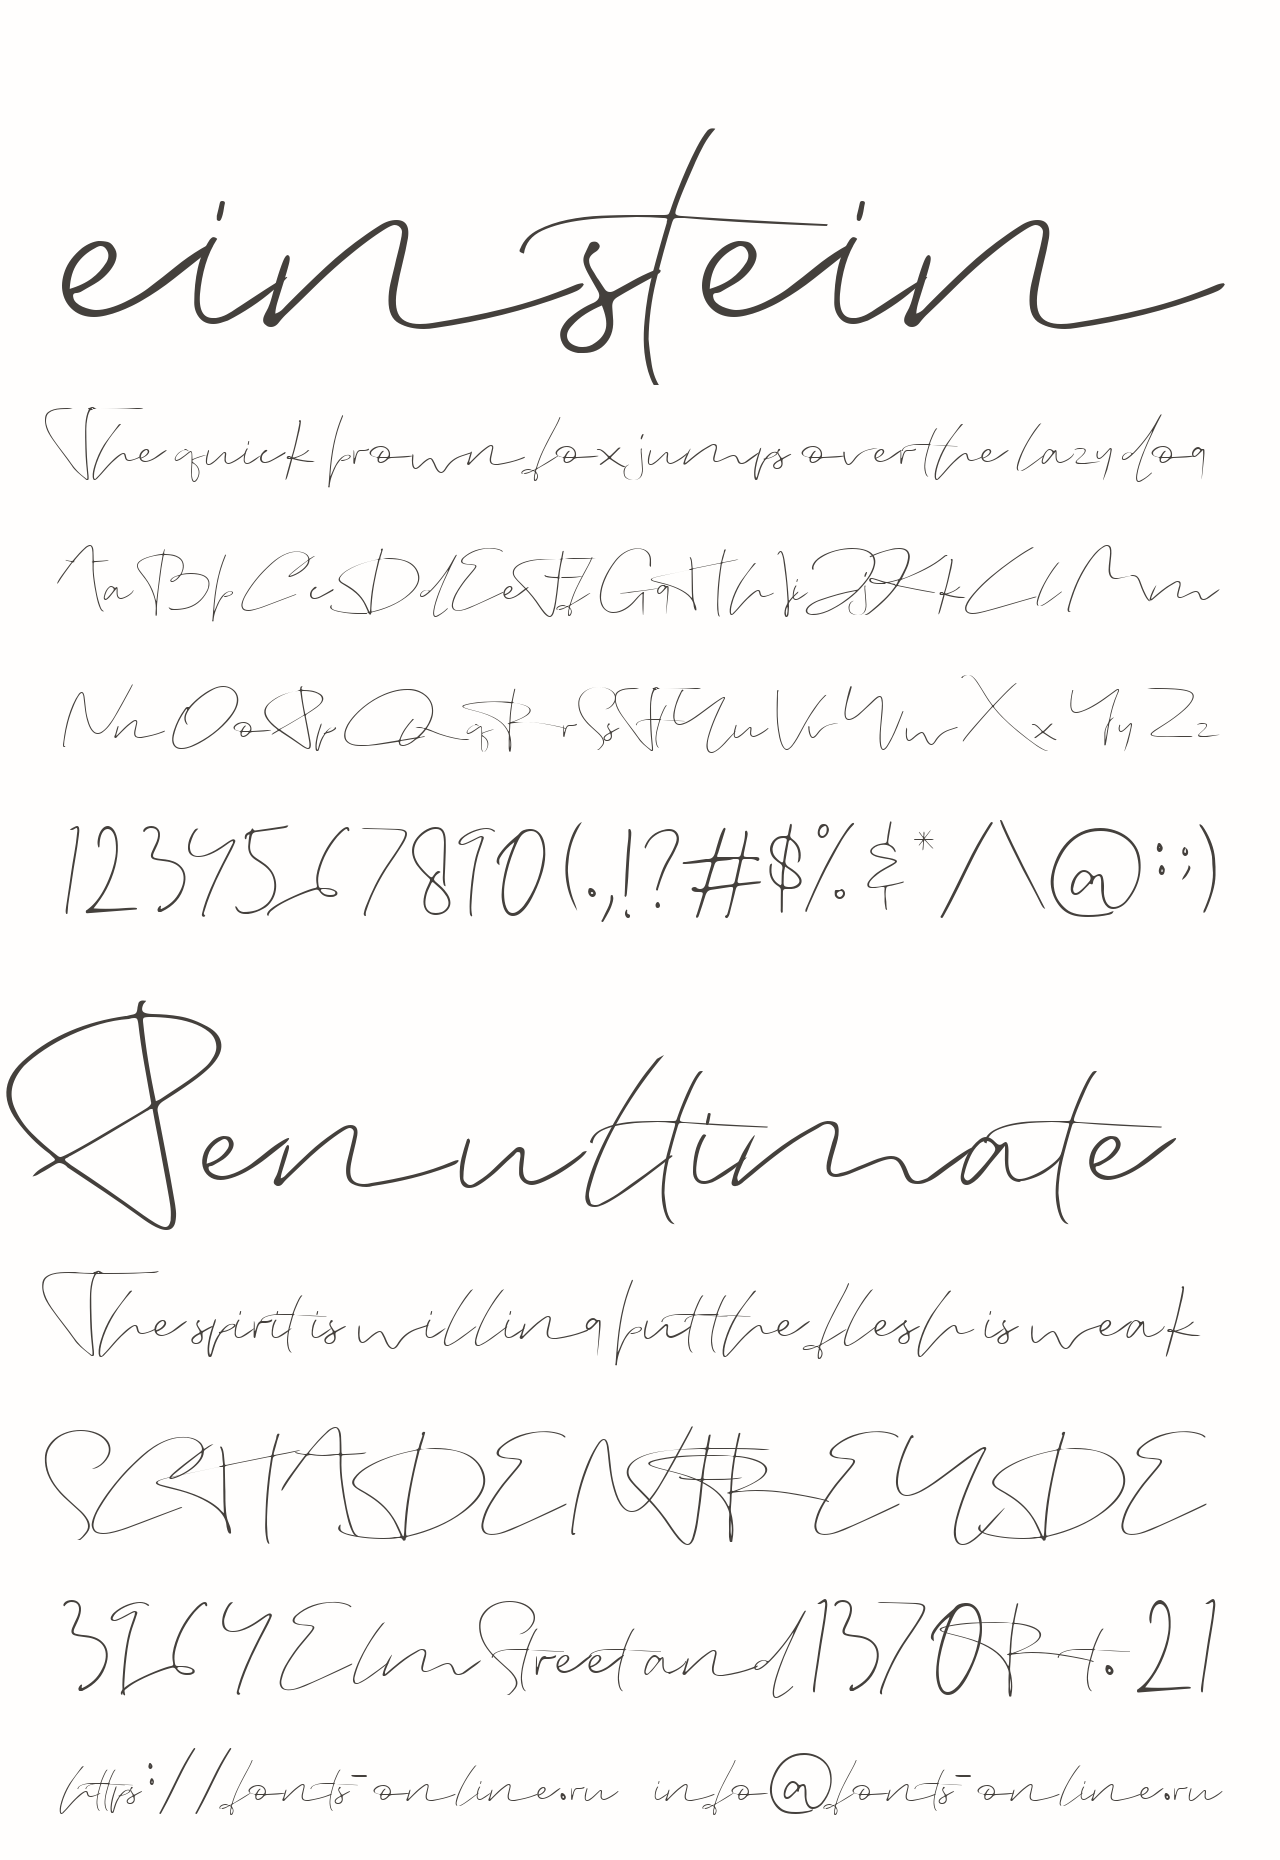 einstein
The quick brown fox jumps over the lazy dog
AaBbCcDdEeFfGgHhIiJjKkLlMm
NnOoPpQqRrSsTtUuVvWwXxYyZz
1234567890(.,!?#$%&*/\@:;)
Penultimate
The spirit is willing but the flesh is weak
SCHADENFREUDE
3964 Elm Street and 1370 Rt. 21
https://fonts-online.ru info@fonts-online.ru